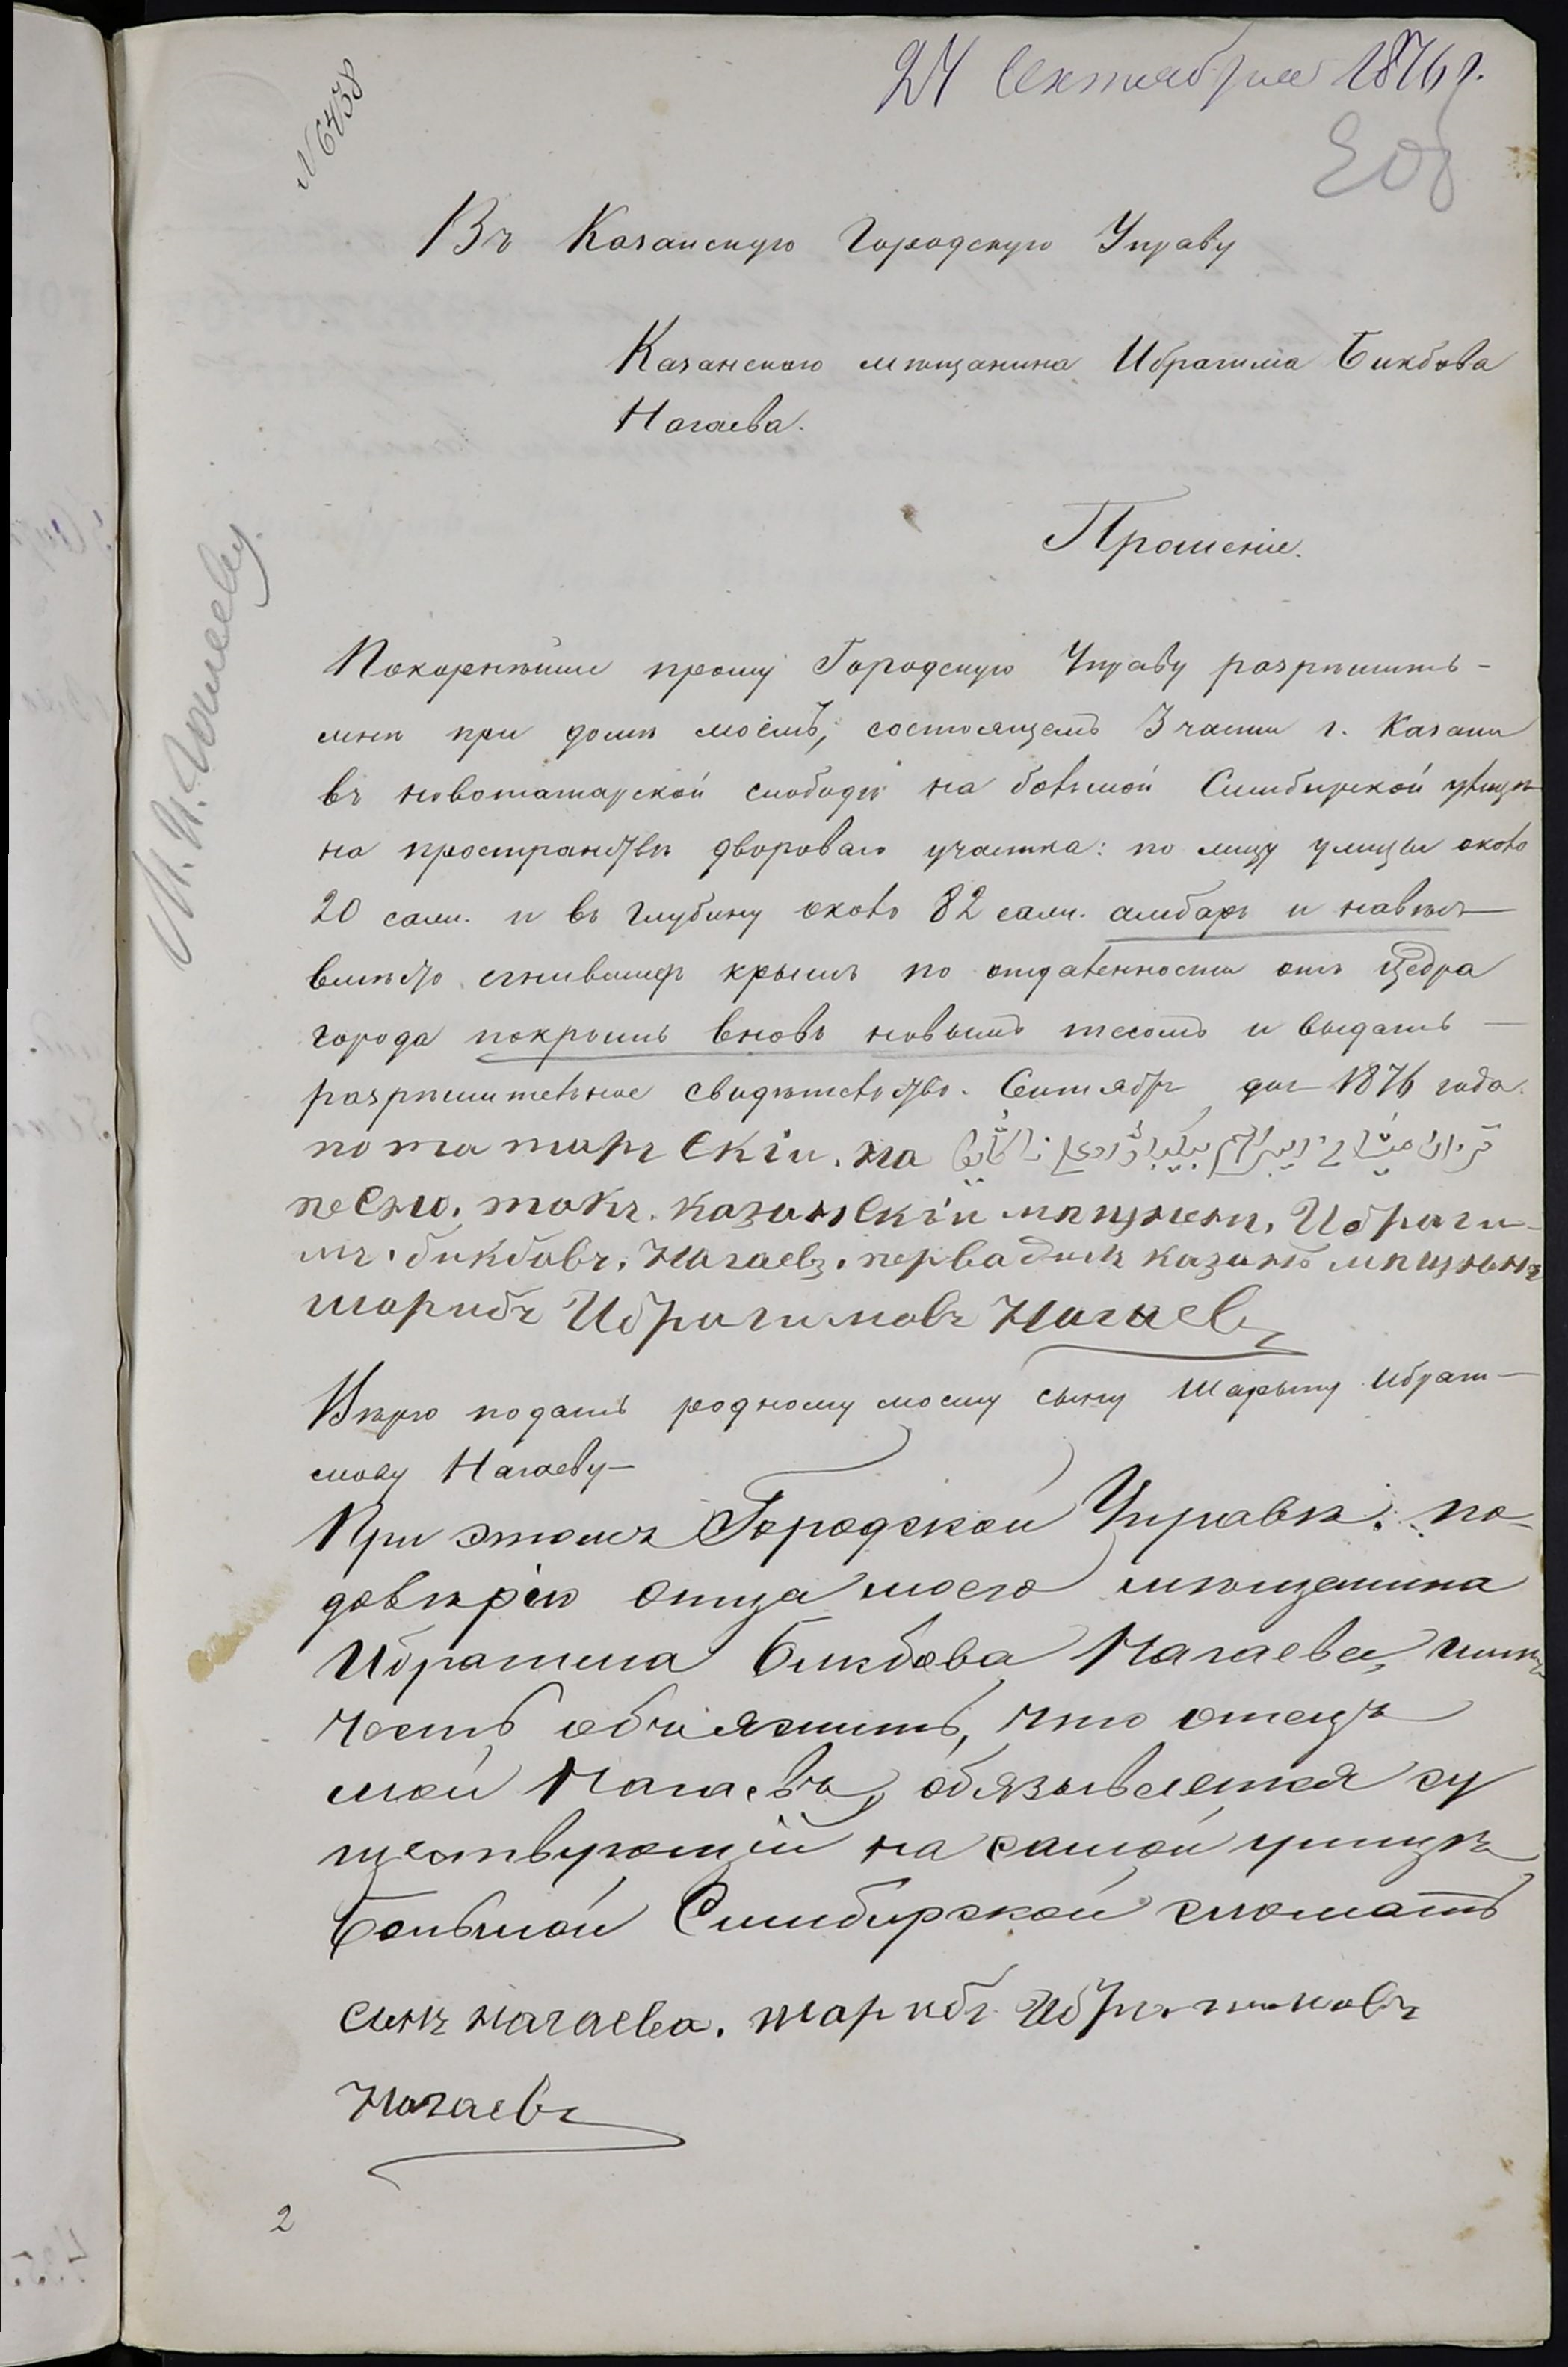 24 Сентября 1876 г.
№ 6438
Въ Казанскую Городскую Управу
Казанскаго мѣщанина Ибрагима Бикбова
Нагаева.
Прошеніе.
Покорнѣйше прошу Городскую Управу разрѣшить-
мнѣ при домѣ моемъ, состоящемъ 3 части г. Казани
въ новотатарской слободѣ на большой Симбирской улицѣ
на пространствѣ двороваго участка: по лицу улицы около
20 саж. и въ глубину около 82 саж. амбаръ и навѣсъ
вмѣсто сгнившихъ крышъ по отдаленности отъ
города покрыть вновь новымъ тесомъ и выдать
разрѣшительное свидѣтельство. Сентября дня 1876 года.
по татарскiи. на قزان ميشانى ابراهيم بيكباو
песно. такъ. казанскiи мѣщнен. Ибраги-
мъ. бикбовъ. Нагаевъ. казань мѣщнынъ
шарибъ Ибрагимовъ Нагаевъ
Вѣрю подать родному моему сыну Шарыпу Ибраги-
мову Нагаеву-
При этомъ Городской Управѣ. по-
довѣрію отца моего мѣщанина
Ибрагима Бикбова Нагаева, имѣю
честь объяснить, что отецъ
мой Нагаевъ, обязывается су
ществующій на самой улицѣ
Большой Симбирской сломать
сынъ нагаева. шарибъ Ибрагимовъ
Нагаевъ
2